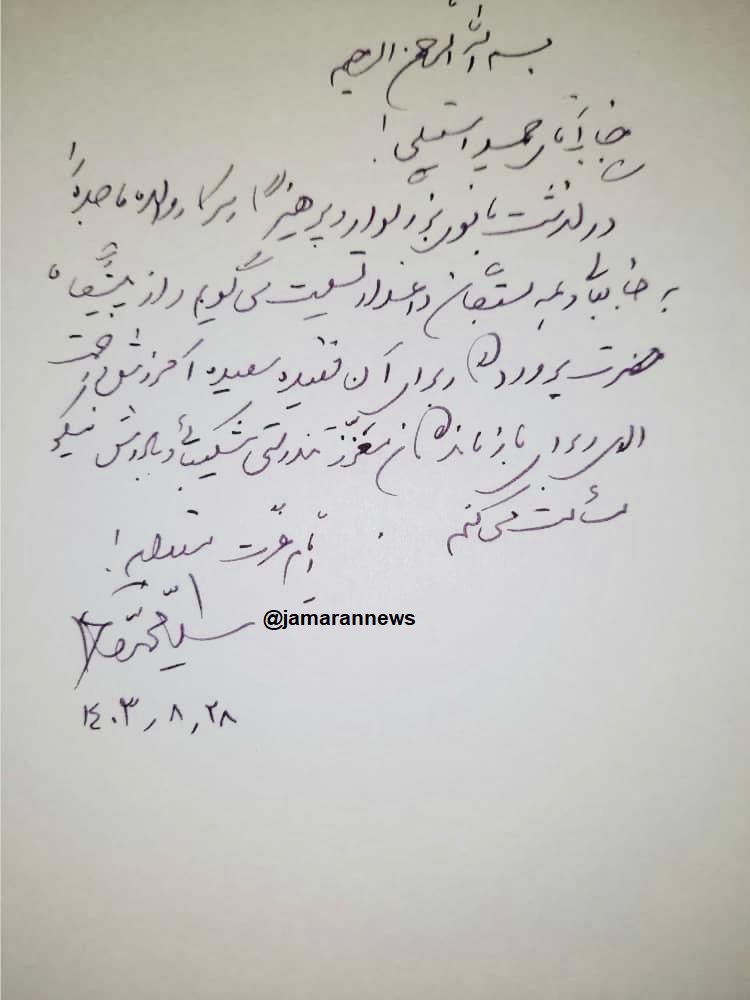 بسم الله الرحمن الرحیم
جناب آقای حمید استیلی!
درگذشت بانوی بزرگوار و پرهیزگار سرکار والده ماجده را
به جنابعالی و همه بستگان داغدار تسلیت می‌گویم و از پیشگاه
حضرت پروردگار برای آن فقیده سعیده آمرزش و رحمت
الهی و برای بازماندگان معزّز تندرستی شکیبائی و پاداش نیکو
مسئلت می‌کنم.
ایام عزت مستدام!
سید محمد خاتمی
@jamarannews
۱۴۰۳٫۸٫۲۸